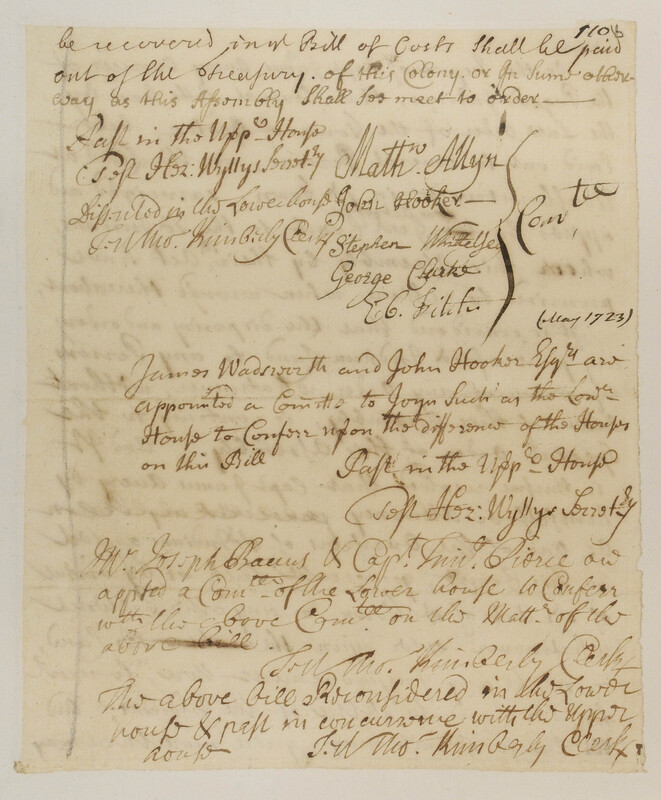 110b
be recovered in sd Bill of Costs shall be paid
out of the Treasury. of this Colony. or In Sume other-
way as this Assembly Shall See meet to order —
Past in the Uppr House
Test Hez: Wyllys Secretry
Dissented in the Lower house
Test Tho. Kimberly Clerk
Mathw. Allyn
John Hooker —
Stephen Whittlesey
George Clarke
Eb. Fitch
Comtee
(May 1723)
James Wadsworth and John Hooker Esqrs are
appointed a Comttee to Joyn Such as the Lowr
House to Conferr upon the difference of the Houses
on this Bill
Past in the Uppr House
Test Hez: Wyllys Secretry
Mr. Joseph Bacus & Capt. Timo. Pierce are
appted a Comtee of the Lower house to Conferr
with the above Comtee on the Mattr of the
above bill.
Test Tho. Kimberly Clerk
The above bill Reconsidered in the Lower
house & past in concurrence with the Upper
house
Test Tho. Kimberly Clerk